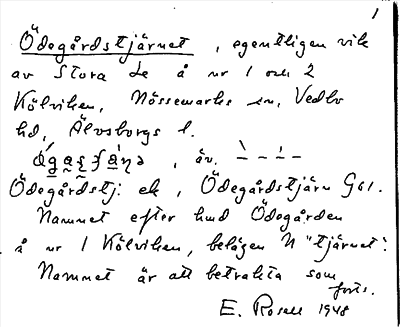 1
Ödegårdstjärnet, egentligen vik
av Stora Le å nr 1 och 2
Kölviken, Nössemarks sn, Vedbo
hd, Älvsborgs l.
, äv. ` – ´ –
Ödegårdstj: ek, Ödegårdstjärn G61.
Namnet efter hmd Ödegården
å nr 1 Kölviken, belägen N "tjärnet".
Namnet är att betrakta som
forts.
E. Rosell 1948